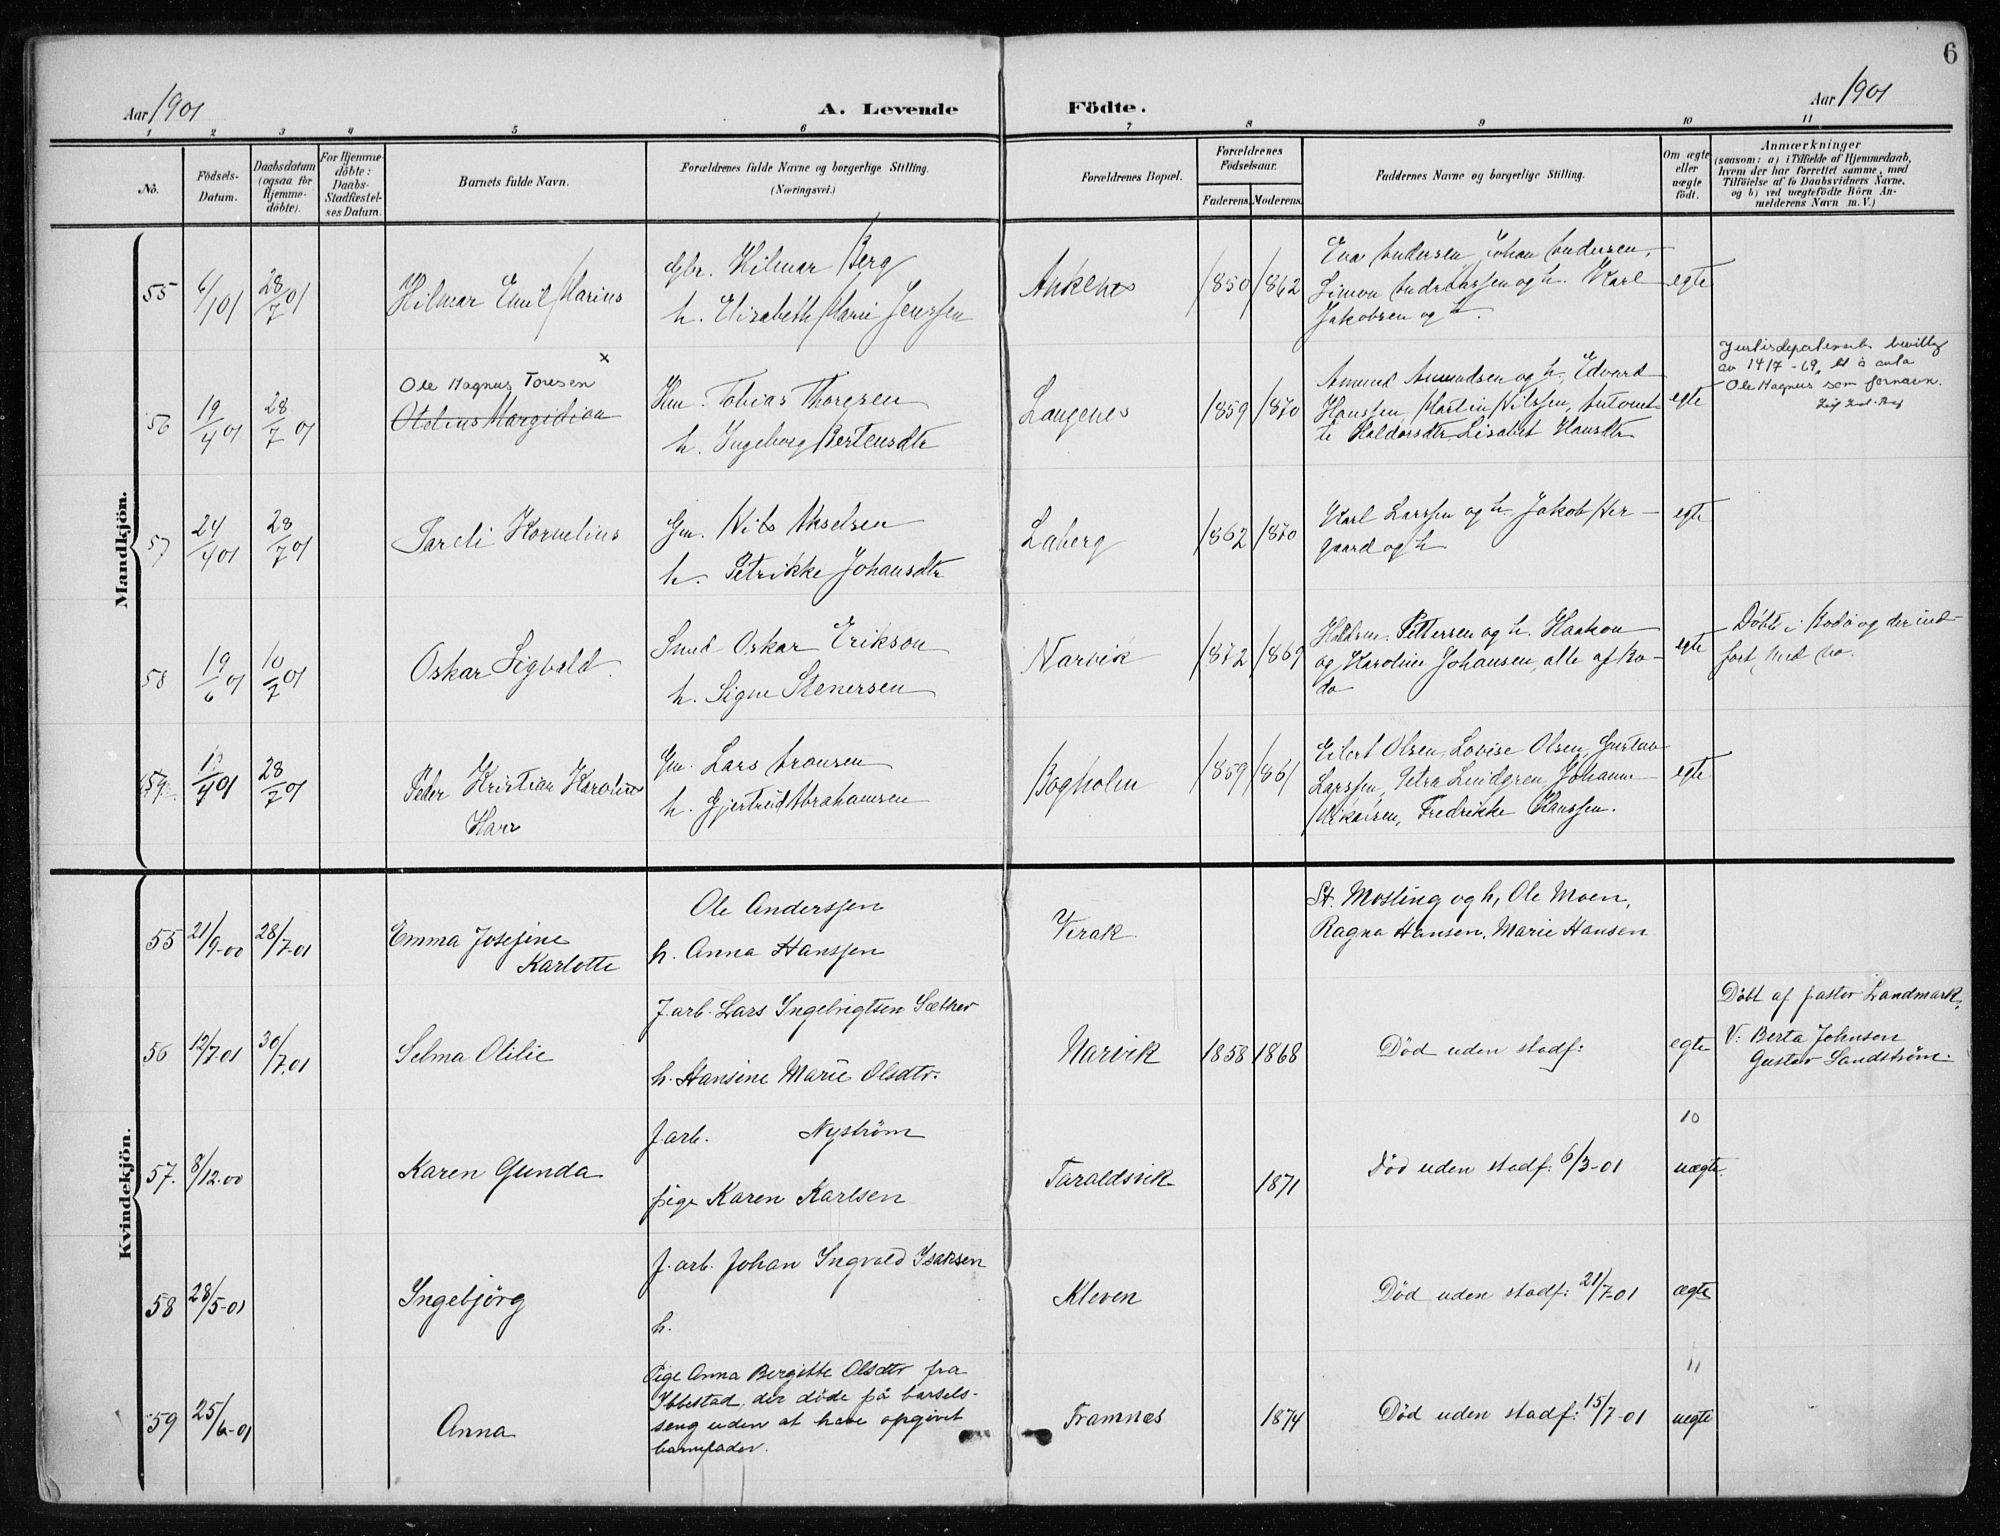 6
Aar 1901
A. Levende Födte.
Aar 1901
1 2 3 4 5 6 7 8 9 10 11
No.
Födsels-
Datum.
Daabsdatum
(ogsaa for
Hjemme-
döbte).
For Hjemme-
döbte:
Daabs-
Stadfæstel-
ses Datum.
Barnets fulde Navn.
Forældrenes fulde Navne og borgerlige Stilling.
(Næringsvei.)
Forældrenes Bopæl.
Forældrenes
Födselsaar.
Faderens. Moderens.
Faddernes Navne og borgerlige Stilling.
Om ægte
eller
uægte
födt.
Anmærkninger
(saasom: a) i Tilfælde af Hjemmedaab,
hvem der har forrettet samme, med
Tilföielse af to Daabsvidners Navne,
og b) ved uægtefödte Börn An-
melderens Navn m. V.)
Mandkjön.
55
28/7 01
Hilmar Emil Marius
Gbr. Hilmar Berg
h. Elisabeth Marie Jenssen
Ankenes
1850 1862
Eva Andersen, Johan Andersen,
Simon Andreassen og h. Karl
Jakobsen og h.
egte
56
19/4 01
28/7 01
Ole Magnus Toresen x
Km. Tobias Thoresen
h. Ingeborg Bertensdtr
Langenes
1859 1870
Amund Amundsen og h, Edvard
Hanssen, Martin Nilssen, Antonet-
te Haldorsdtr, Lisabet Hansdtr
egte
Justisdepartementets bevilling
av 1417-69, til å anta
Ole Magnus som fornavn.
57
24/4 01
28/7 01
Kornelius
Gm. Nils Akselsen
h. Petrikke Johansdtr
Laberg
1862 1870
Karl Larssen og h, Jakob Ner-
gaard og h
egte
58
19/6 01
10/7 01
Oskar Sigvald.
Smed Oskar Erikson
h. Signe Stenersen
Narvik
1872 1869
Pettersen og h. Haakon
og Karoline Johansen, alle af Bo-
dø
egte
Døbte i Bodø og der ind-
ført, med No.
59
28/7 01
Peder Kristian Karolius
Harr
Gm. Lars Aronsen
h. Gjertrud Abrahamsen
Bogholm
1859 1861
Eilert Olsen, Lovise Olsen, Gustav
Larssen, Petra Lindgren, Johann
Mikalsen, Fredrikke Hanssen.
egte
Kvindekjön.
55
21/9-00
28/7-01
Emma Josefine
Karlotte
Ole Anderssen
h. Anna Hanssen
Virak
St. Mosling og h, Ole Moen,
Ragna Hansen, Marie Hansen
56
12/7.01
30/7.01
Selma Otilie
J.arb. Lars Ingebrigtsen Sæther
h. Hansine Marie Olsdtr.
Narvik
1858 1868
Død uden stadf:
egte
Døbt af pastor Landmark,
V: Berta Johnsen
Gustav Sandstrøm.
57.
8/12.00
Karen Gunda
J.arb. Nystrøm
pige Karen Karlsen
Taraldsvik
1871
Død uden stadf: 6/3-01
10
uægte
58
28/5-01
Ingebjörg
J. arb. Johan Ingvald Isaksen
h.
Kleven
Død uden stadf: 21/7-01
ægte
59
25/6-01
Anna
Pige Anna Bergitte Olsdtr fra
Ibbestad, der døde på barsels-
seng uden at have opgivet
barnefader.
Framnæs
1874
Død uden stadf: 15/7-01
11
uegte